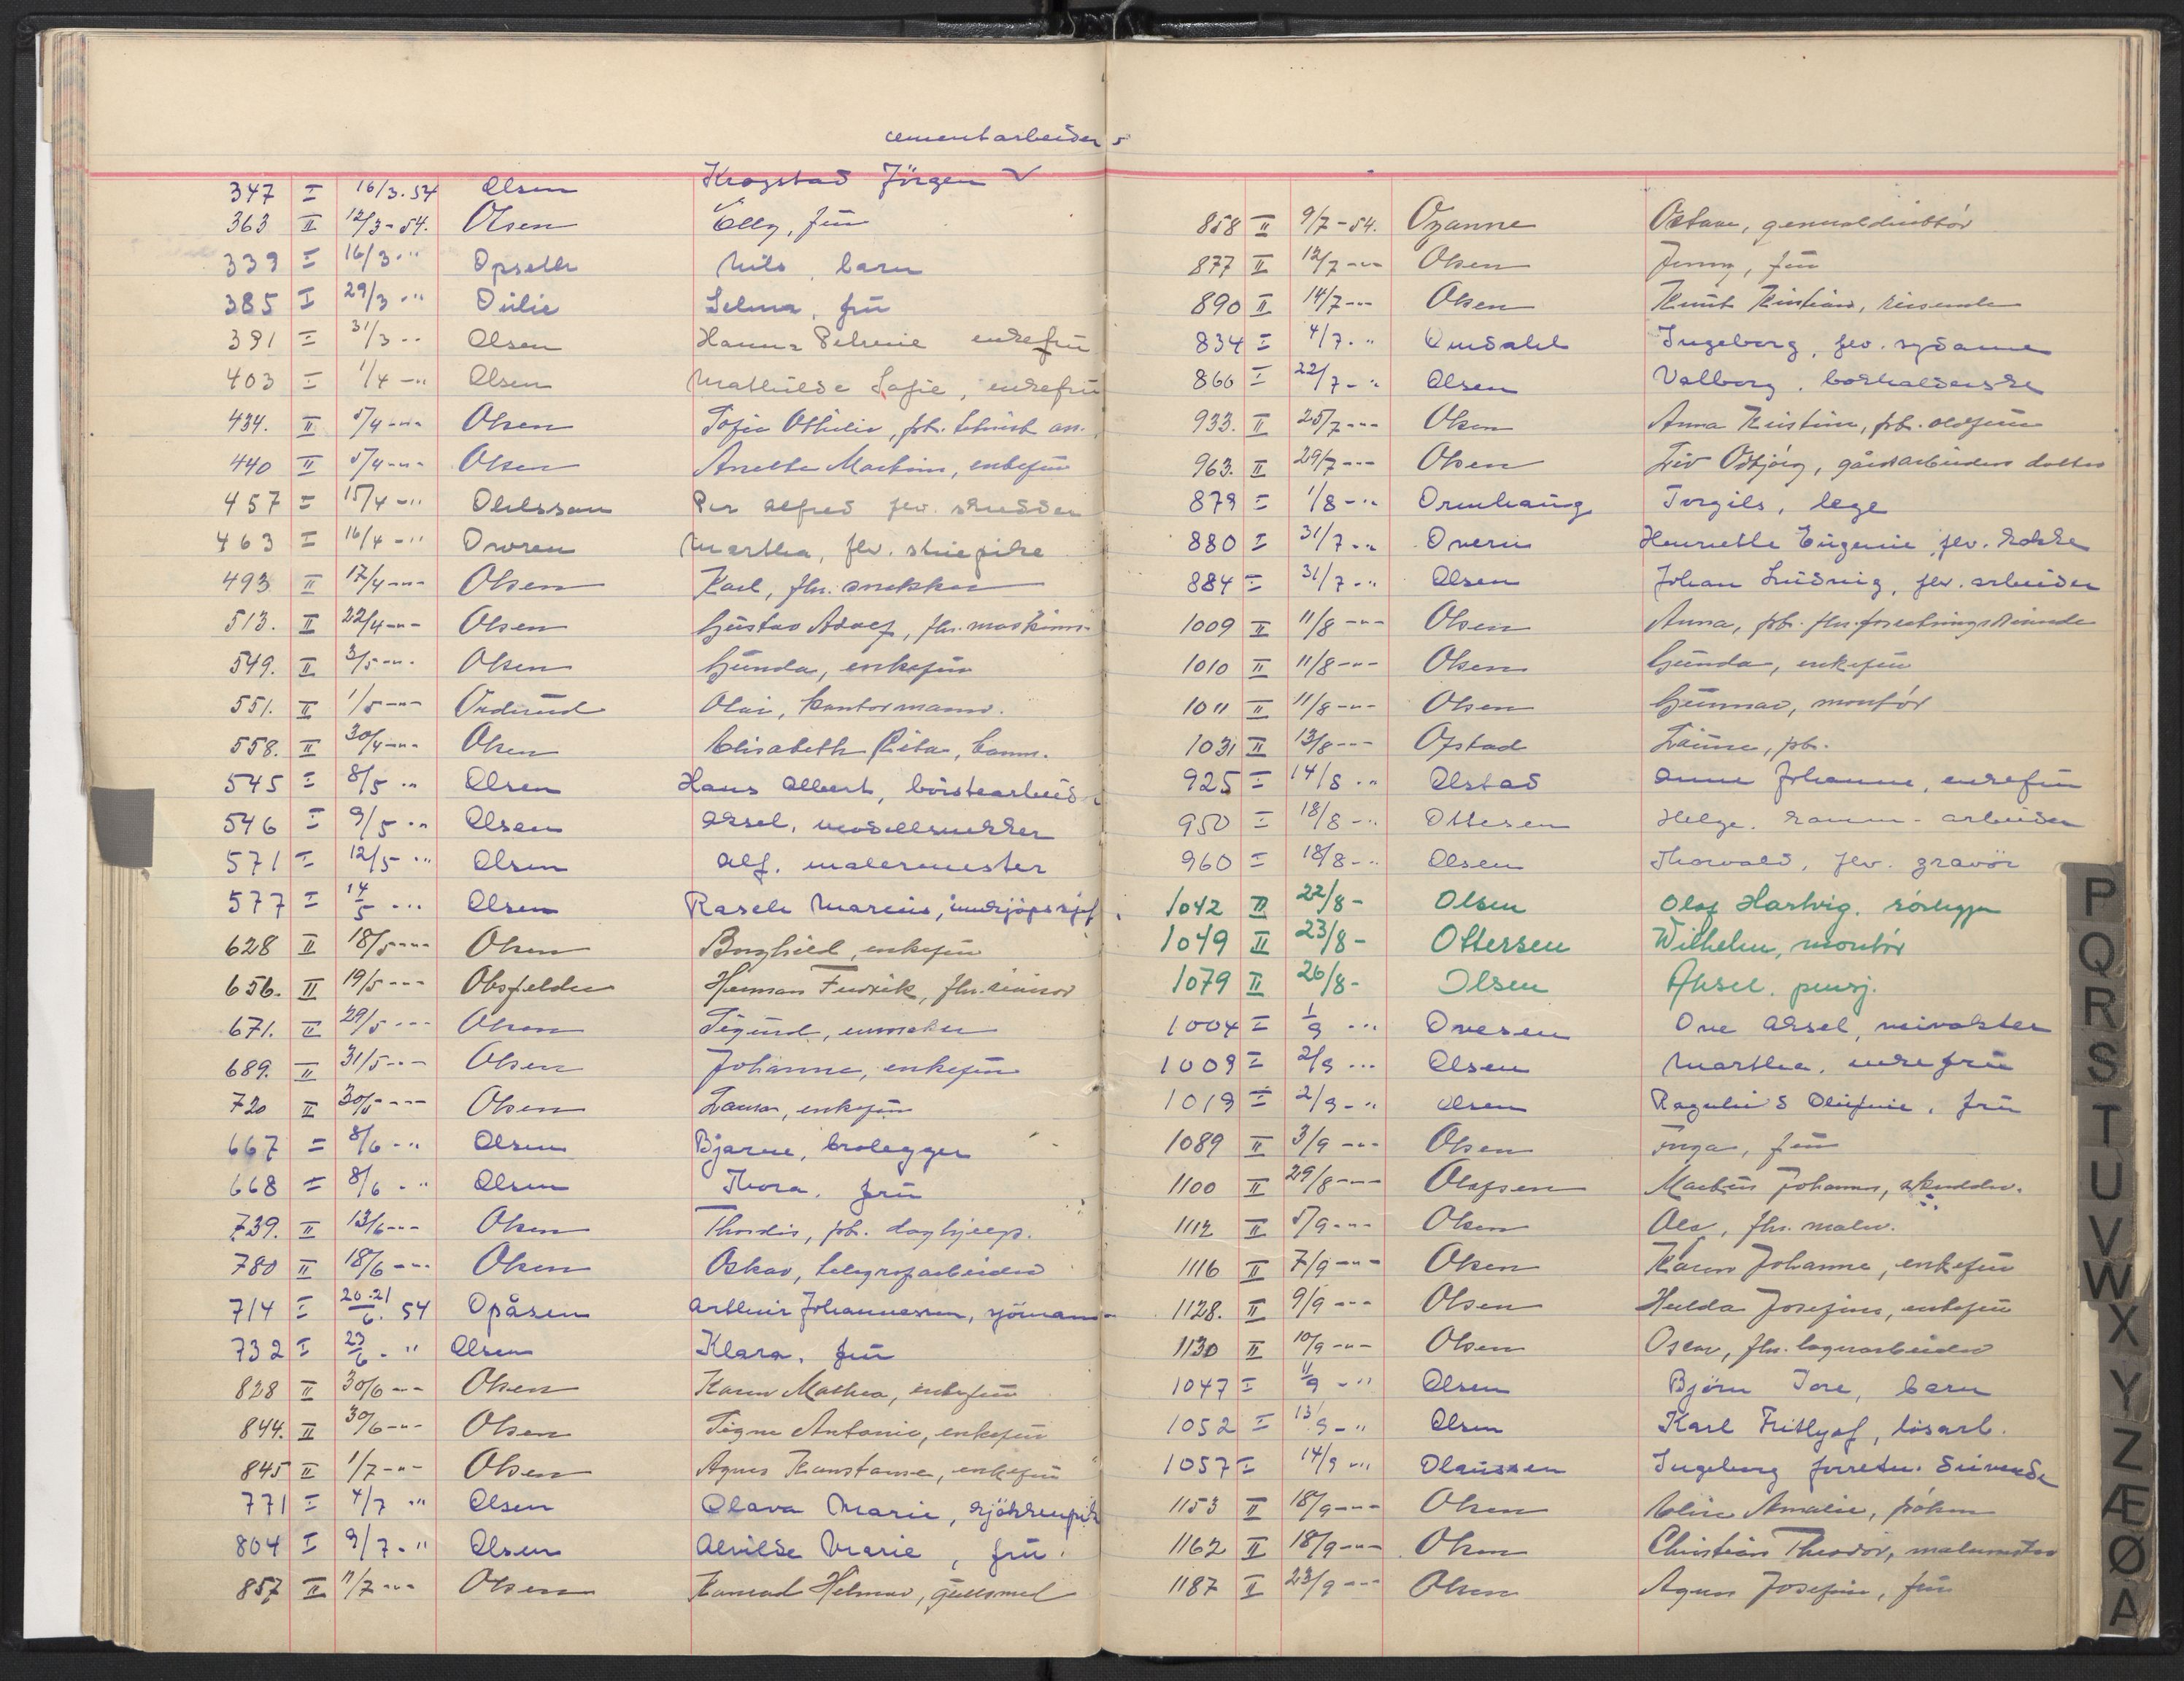 cementarbeider
347 I 16/3.54 Olsen Krogstad Jörgen
363 II 12/3-54. Olsen Elly, frü
339 I 16/3 -" Opseth Nils, barn
385 I 29/3 -" Selma, frü
391 I 31/3 -" Olsen Hanna enkefrü
403 I 1/4 -" Olsen Mathilde Sofie, enkefrü
434. II 5/4 -"- Olsen Sofie Othilie, pb.
440 II 5/4 -"- Olsen Anette enkefrü
457 I 15/4 -" Ohlsson Per Alfred flv. skredder
463 I 16/4 -" Ovoren Martha, flv.
493 II 17/4 -"- Olsen Karl, fhv. snekker
513. II 22/4 -"- Olsen Güstav Adolf, fhv. maskinm.
549. II 3/5 -"- Olsen Günda, enkefrü
551. II 1/5 -"- Olai, kontormann.
558. II 30/4 -"- Olsen Elisabeth barn.
545 I 8/5 -" Olsen Hans Albert, börstearbeid
546 I 9/5 -" Olsen Aksel, modellsnekker
571 I 12/5 -" Olsen Alf. malermester
577 I 14/5 -" Olsen Marcüs, innkjöpssjef
628 II 18/5 -"- Olsen Borghild, enkefrü
656. II 19/5 -"- Obsfelder Herman Fredrik, fhv. revisor
671. II 29/5 -"- Olsen Sigürd, ürmaker
689. II 31/5 -"- Olsen Johanne, enkefrü
720 II 30/5 -"- Olsen Laura, enkefrü
667 I 8/6 -" Olsen Bjarne, brolegger
668 I 8/6 -" Olsen Thora, frü
739. II 13/6 -"- Olsen Thordis, pb. daghjelp.
780 II 18/6 -"- Olsen Oskar, telegrafarbeider
714 I 20-21/6. 54 Opåsen Arthür Johannessen, sjömann
732 I 23/6 -" Olsen Klara, frü
828 II 30/6 -"- Olsen Karen Mathea, enkefrü
844. II 30/6 -"- Olsen Signe Antonie, enkefrü
845 II 1/7 -"- Olsen Agnes Konstanse, enkefrü
771 I 4/7 -" Olsen Olava Marie, kjökkenpik
804 I 9/7 -" Olsen Alvilde Marie, frü
857 II 11/7 -"- Olsen Konrad Hilmar, güllsmed
858 II 9/7-54. Ozanne Octave, generaldirektör
877 II 12/7 -"- Olsen Jenny, frü
890 II 14/7 -"- Olsen Knüt Kristian, reisende
834 I 4/7 -" Omdahl Ingeborg, flv. sydame
866 I 22/7 -" Olsen Valborg, bokholderske
933. II 25/7 -"- Olsen Anna Kristine, pb. oldfrüe
963. II 29/7 -"- Olsen Liv Oddjörg, gårdsarbeiders datter
879 I 1/8 -" Ormhaüg Torgils, lege
880 I 31/7 -" Henriette Eügenie, flv. kokke
884 I 31/7 -" Olsen Johan Lüdvig, flv. arbeider
1009 II 11/8 -"- Olsen Anna, pb. fhv. forretningsdrivende
1010 II 11/8 -"- Olsen Günda, enkefrü
1011 II 11/8 -"- Olsen Günnar, montör
1031 II 13/8 -"- Ofstad pb.
925 I 14/8 -" Olstad Anne Johanne, enkefrü
950 I 18/8 -" Ottesen Helge, komm. arbeider
960 I 18/8 -" Olsen Thorvald, flv. gravör
1042 II 22/8 - Olsen Olaf Hartvig. rörlegger
1049 II 23/8 - Ottersen Wilhelm, montör
1079 II 26/8 - Olsen Aksel. pensj.
1004 I 1/9 -" Ovesen Ove Aksel, veivokter
1009 I 2/9 -" Olsen Martha, enkefrü
1019 I 2/9 -" Olsen Ragnhild Olüfine, frü
1089 II 3/9 -"- Olsen Inga, frü
1100 II 29/8 -"- Olafsen Johannes, skredder.
1112 II 5/9 -"- Olsen Ole, fhv. maler.
1116 II 7/9 -"- Olsen Karen Johanne, enkefrü
1128. II 9/9 -"- Olsen Hulda Josefine, enkefrü
1130 II 10/9 -"- Olsen Oscar, fhv. lagerarbeider
1047 I 11/9 -" Olsen Björn Tore, barn
1052 I 13/9 -" Olsen Karl Frithjof, lösarb.
1057 I 14/9 -" Olaüssen Ingeborg forretn. drivende
1153 II 18/9 -"- Olsen Amalie, fröken
1162 II 18/9 -"- Olsen Christian Theodor, malermester
1187 II 23/9 -"- Olsen Agnes Josefine, frü
P
Q
R
S
T
U
V
W
X
Y
Z
Æ
Ø
A